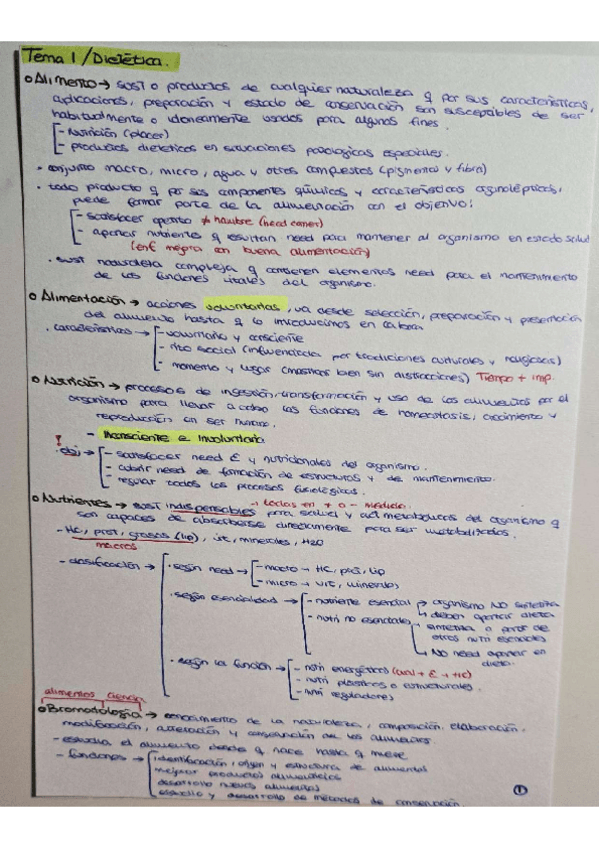 Tema 1 / Dietética.
Alimento → sust o productos de cualquier naturaleza q por sus características,
aplicaciones, preparación y estado de conservación son susceptibles de ser
habitualmente o idoneamente usados para algunos fines.
- Nutrición (placer)
- productos dieteticos en situaciones patologicas especiales.
· conjunto macro, micro, agua y otros compuestos (pigmento y fibra)
· todo producto q por sus componentes químicos y características organolépticas,
puede formar parte de la alimentación con el objetivo:
- satisfacer apetito ≠ hambre (need comer)
- aportar nutrientes q necesitan need para mantener al organismo en estado salud
(enf mejora con buena alimentación)
· sust naturaleza compleja q contienen elementos need para el mantenimiento
de las funciones vitales del organismo.
Alimentación → acciones voluntarias, va desde selección, preparación y presentación
del alimento hasta q lo introducimos en
· características → - voluntario y consciente
- rito social (influenciada por tradiciones culturales y religiosas)
- momento y lugar (masticar bien sin distracciones) Tiempo + imp.
Nutrición → procesos de ingestión, transformación y uso de los alimentos por el
organismo para llevar a cabo las funciones de homeostasis, crecimiento y
reproducción en ser humano.
- Inconsciente e Involuntario
! obj → - satisfacer need E y nutricionales del organismo.
- cubrir need de formación de estructuras y de mantenimiento.
- regular todos los procesos fisiológicos.
Nutrientes → sust indispensables para salud y act metabólicas del organismo q
→ todas en + o - medida
son capaces de absorberse directamente para ser metabolizados.
- HC, prot, grasas (lip), vit, minerales, H2O
macros
- clasificación → · según need → - macro → HC, prot, lip
- micro → vit, minerales
· según esencialidad → - nutriente esencial → organismo NO sintetiza
→ deben aportar dieta
- nutri no esenciales → sintetiza a partir de
otros nutri esenciales
→ NO need aportar en
dieta.
· según la función → - nutri energéticos (cual + E → HC)
- nutri plásticos o estructurales
- nutri reguladores
alimentos ciencia
Bromatología → conocimiento de la naturaleza, composición, elaboración,
modificación, alteración y conservación de los alimentos.
- estudia el alimento desde q nace hasta q muere
- funciones → identificación, origen y estructura de alimentos
mejorar productos alimentarios
desarrollo nuevos alimentos
estudio y desarrollo de métodos de conservación.
1